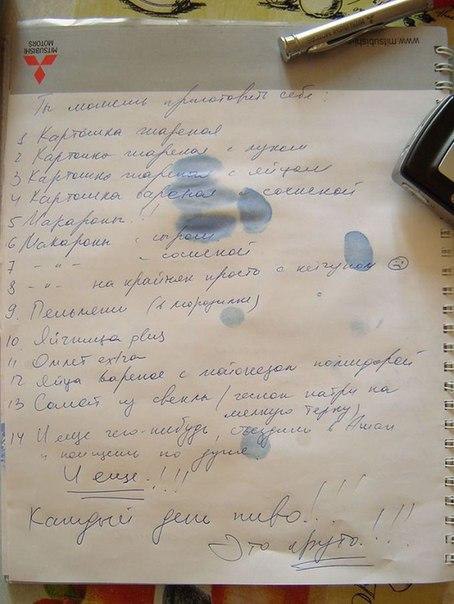 MITSUBISHI
MOTORS
www.mitsubishi
Ты можешь приготовить себе:
1 Картошка жареная
2 Картошка жареная с луком
3 Картошка жареная с яйцом
4 Картошка вареная с сосиской
5 Макароны!!
6 Макароны с сыром
7 -"- -"- сосиской
8 -"- на крайняк просто с кетчупом
9. Пельмени (в морозилке)
10 Яичница plus
11 Омлет extra
12 Яйца вареное с майонезом помидорой
13 Салат из свеклы (чеснок натри на
мелкую терку)
14 И еще чего-нибудь, съездили в Ашан
и поищешь по душе.
И еще!!!
Каждый день пиво!!!
Это круто!!!